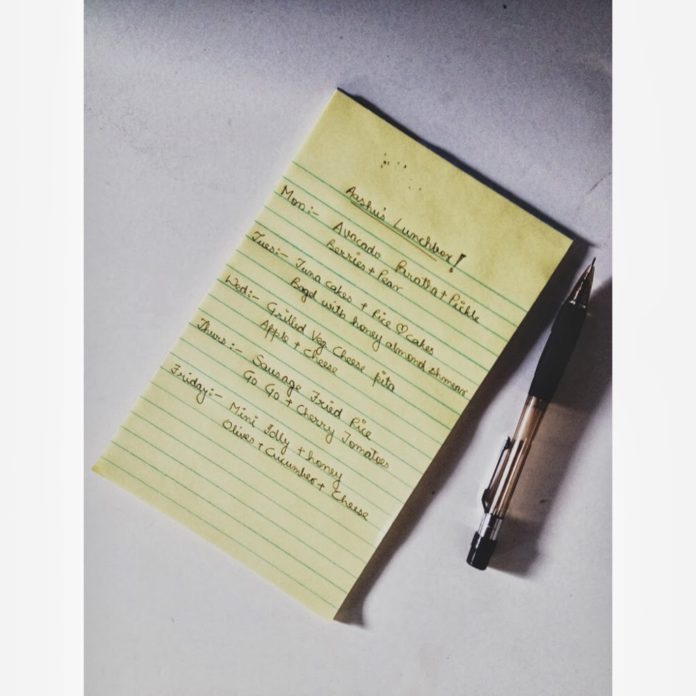 Aashu's Lunchbox!
Mon:- Avacado Paratha + Pickle
Berries + Pear
Tues:- Tuna cakes + Rice ♡ Cakes
Bagel with honey almond shmear
Wed:- Grilled Veg Cheese pita
Apple + Cheese
Thurs:- Sausage Fried Rice
Go Go + Cherry Tomatoes
Friday:- Mini Idly + honey
Olives + Cucumber + Cheese